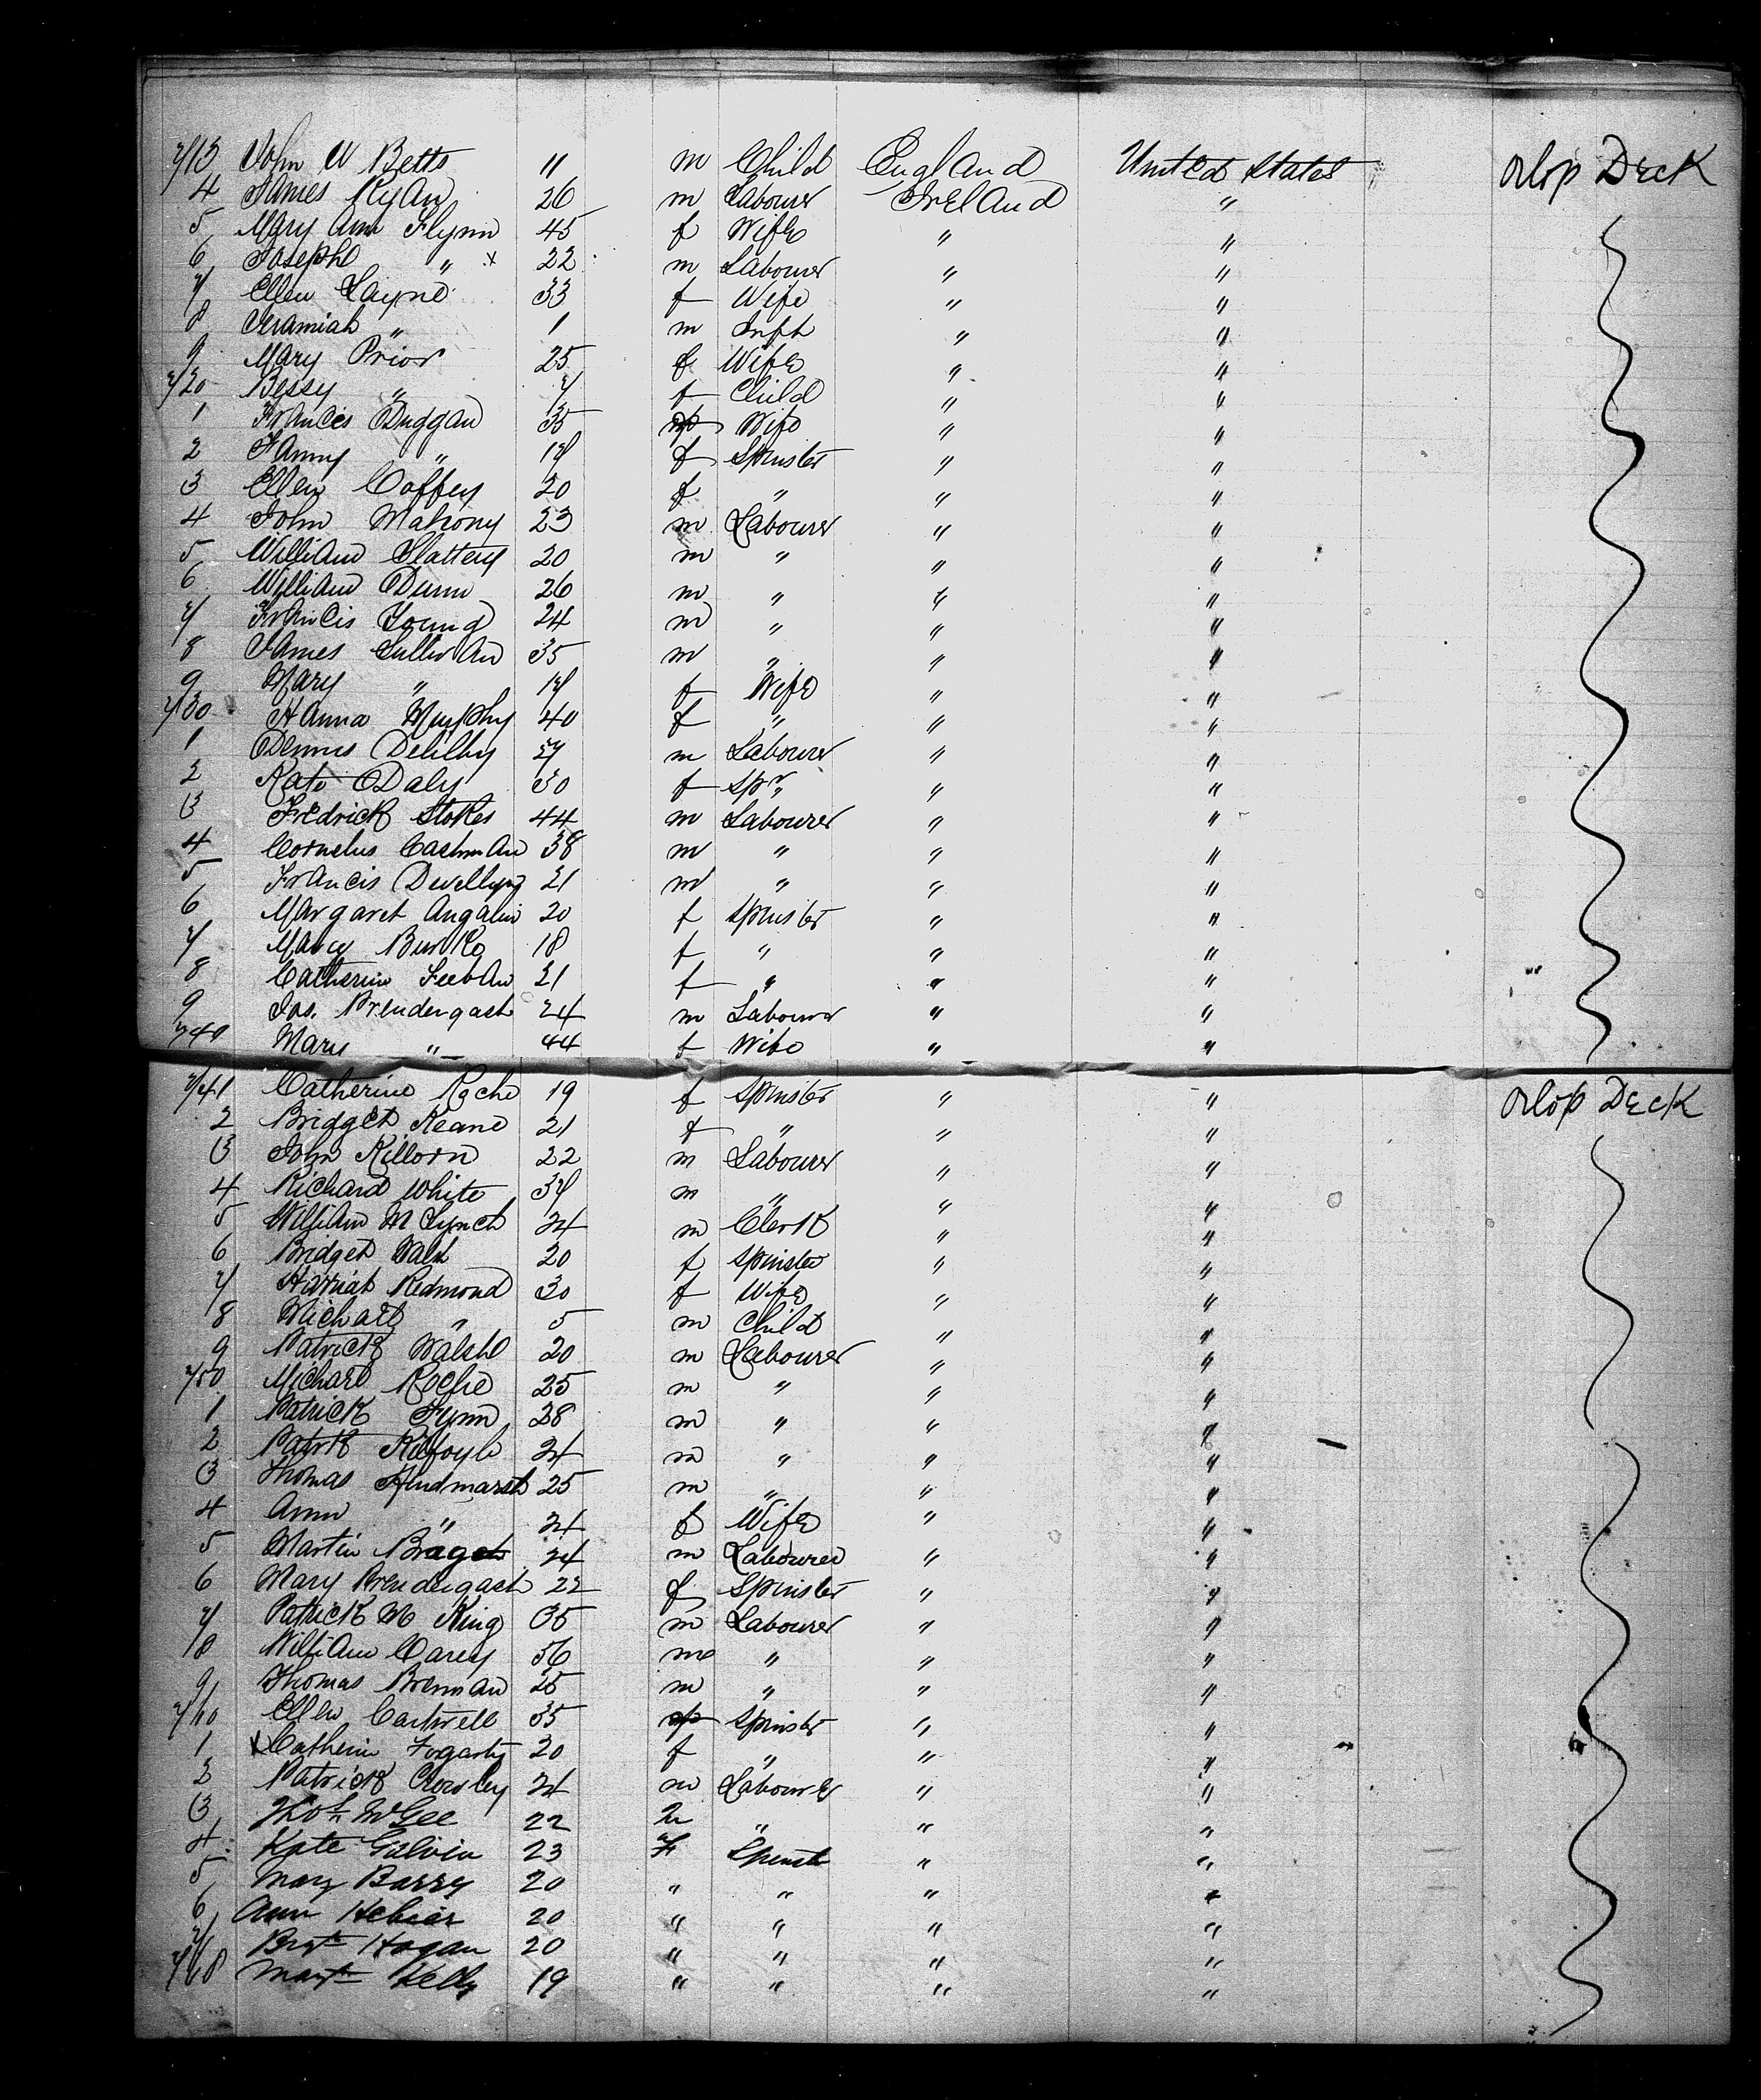 713 John W Betts 11 m Child England United States Orlop Deck
4 James Ryan 26 m Labourer Ireland "
5 Mary Ann Flynn 45 f Wife " "
6 Joseph " x 22 m Labourer " "
7 Ellen Layne 33 f Wife " "
8 Jeramiah " 1 m Inft " "
9 Mary Prior 25 f Wife " "
720 Bessy " 7 f Child " "
1 Francis Duggan 35 Wife " "
2 Fanny " 17 f Spinster " "
3 Ellen Coffey 20 f " " "
4 John Mahony 23 m Labourer " "
5 William Slattery 20 m " " "
6 William Dunn 26 m " " "
7 Francis Young 24 m " " "
8 James Sullivan 35 m " " "
9 Mary " 17 f Wife " "
730 Hanna Murphy 40 f " " "
1 Dennis m Labourer " "
2 Kate Daly 30 f Spr " "
3 Fredrick Stokes 44 m Labourer " "
4 Cornelus Cashman 38 m " " "
5 Francis 21 m " " "
6 Margaret 20 f Spinster " "
7 Mary Burke 18 f " " "
8 Catherine 21 f " " "
9 Jas. Prendergast 24 m Labourer " "
740 Mary " 44 f Wife " "
741 Catherine Roche 19 f Spinster " " Orlop Deck
2 Bridget Keane 21 f " " "
3 John Killorn 22 m Labourer " "
4 Richard White 37 m " " "
5 William M Lynch 24 m Clerk " "
6 Bridget 20 f Spinster " "
7 Harriat Redmond 30 f Wife " "
8 Michael " 5 m Child " "
9 Patrick Walsh 20 m Labourer " "
750 Michael Roche 25 m " " "
1 Patrick Flynn 28 m " " "
2 Patrk Kilfoyle 24 m " " "
3 Thomas Hindmarsh 25 m " " "
4 Ann " 24 f Wife " "
5 Martin 24 m Labourer " "
6 Mary Prendergast 22 f Spinster " "
7 Patrick M King 35 m Labourer " "
8 William Carey 56 m " " "
9 Thomas Brennan 25 m " " "
Ellen Cantwell 35 Spinster " "
1 x Catherin Fogarty 20 f " " "
2 Patrick Crowley 24 m Labourer " "
3 McGee 22 m " " "
4 Kate Galvin 23 F Spinst " "
5 Mary Barry 20 " " " "
6 Ann 20 " " " "
7 Brgt Hogan 20 " " " "
768 Margt Kelly 19 " " " "